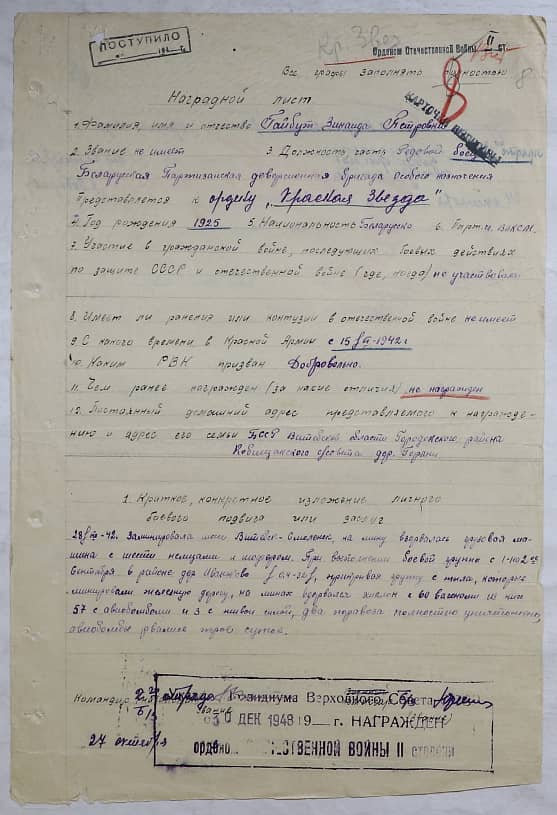 ПОСТУПИЛО
Кр Звез
Орденом Отечественной Войны II ст.
Все графы заполнять полностью
8
КАРТОЧКА
Наградной лист
1. Фамилия, имя и отчество Гайбут Зинаида Петровна
2. Звание не имеет 3. Должность, часть Рядовой боец
Беларуская Партизанская диверсионная бригада Особого назначения
Представляется к ордену "Красная Звезда"
4. Год рождения 1925 5. Национальность Беларуска 6. Парт. ч. ВЛКСМ.
7. Участие в гражданской войне, последующих боевых действиях
по защите СССР и отечественной войне (где, когда) не участвовала
8. Имеет ли ранения или контузии в отечественной войне не имеет
9. С какого времени в Красной Армии с 1942 г
10. Каким РВК призван Добровольно.
11. Чем ранее награжден (за какие отличия) не награжден
12. Постоянный домашний адрес представляемого к награжде-
нию и адрес его семьи БССР Витебской области Городокского района
с/совета дер.
1. Краткое, конкретное изложение личного
боевого подвига или заслуг
-42. Заминировала шоссе Витебск-Смоленск, на мину взорвалась грузовая ма-
шина с шести немцами и шофером. При выполнении боевой группы с 1 по 2
Сентября в районе дер прикрывая группу с тыла, которые
минировали железную дорогу, на минах взорвался эшелон с 60 вагонами из них
57 с авиобомбами и 3 с живой силой, два паровоза полностью уничтожены,
авиобомбы рвались трое суток.
Командир
Президиума Верховного Совета
30 ДЕК 1948 г. НАГРАЖДЕН
орденом ОТЕЧЕСТВЕННОЙ ВОЙНЫ II степени
27 октября